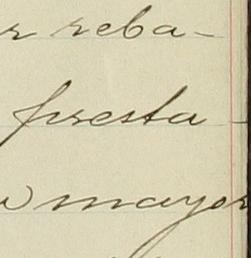 r reba-
presta-
mayor